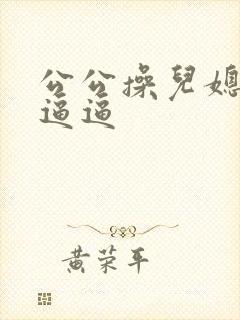 公公操兒媳
逼逼
黄荣平